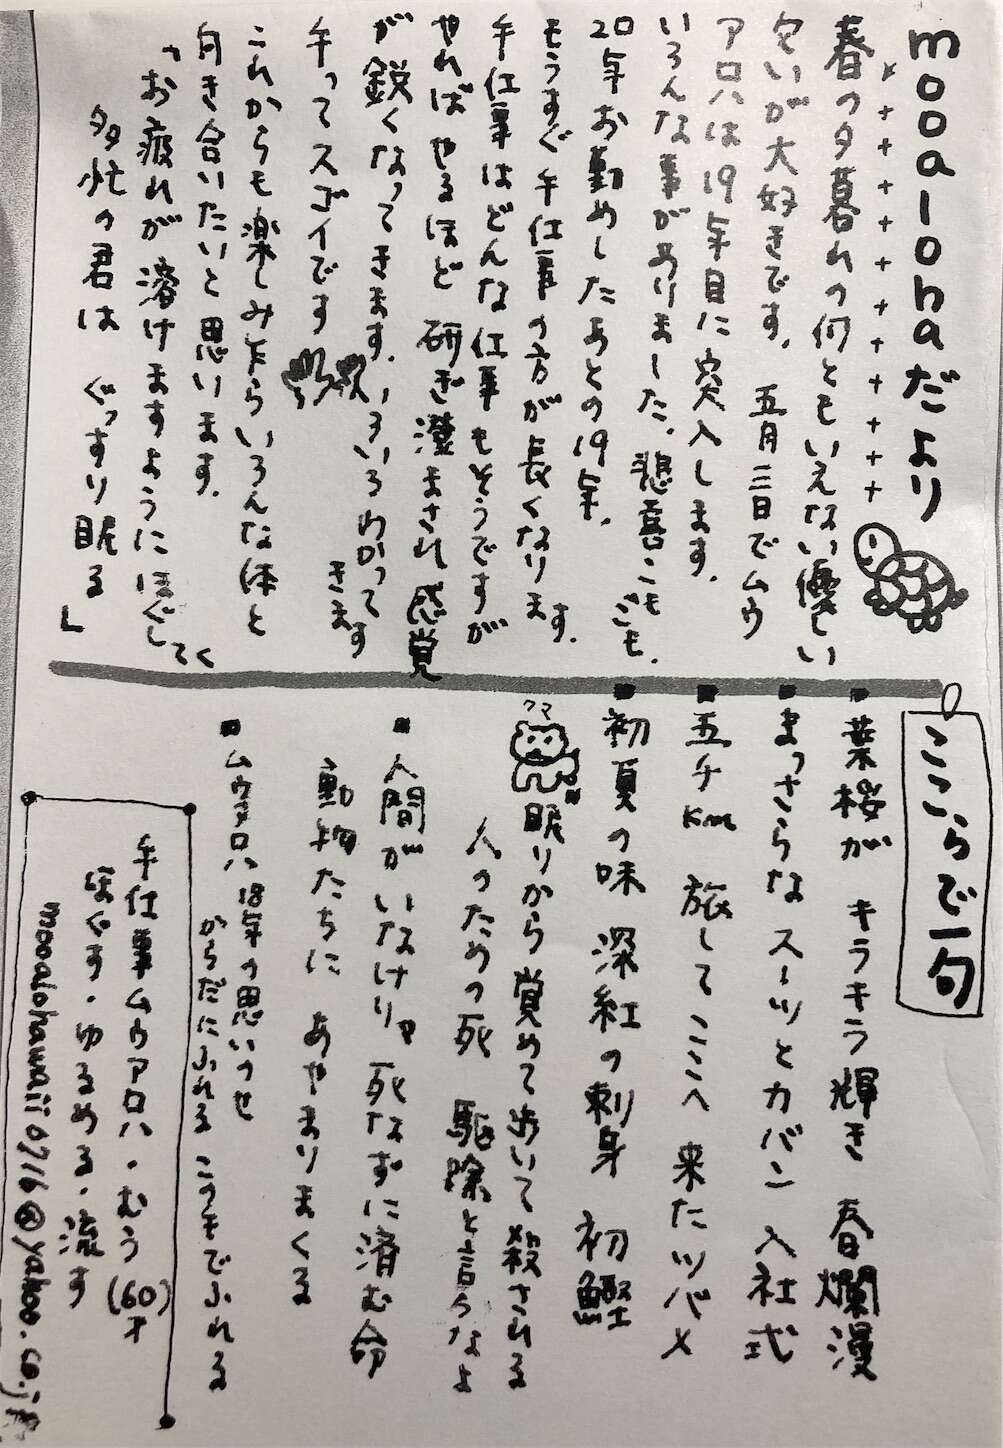 mooalohaだより
春の夕暮れの何ともいえない優しい
匂いが大好きです。 五月三日でムウ
アロハは19年目に突入します。
いろんな事がありました。悲喜こもごも。
20年お勤めしたあとの19年。
もうすぐ手仕事の方が長くなります。
手仕事はどんな仕事もそうですが
やればやるほど 研ぎ澄まされ感覚
が鋭くなってきます。いろいろわかってきます
手ってスゴイです
これからも楽しみ乍らいろんな体と
向き合いたいと思います。
「お疲れが溶けますようにほぐしてく
多忙の君は ぐっすり眠る」
ここらで一句
■葉桜が キラキラ輝き 春爛漫
■まっさらな スーツとカバン 入社式
■五千km 旅して ここへ 来たツバメ
■初夏の味 深紅の刺身 初鰹
クマ
■眠りから覚めて歩いて殺される
人のための死 駆除と言うなよ
■人間がいなけりゃ 死なずに済む命
動物たちに あやまりまくる
■ムウアロハ 18年の思いのせ
からだにふれる こころでふれる
手仕事ムウアロハ・むう(60)才
ほぐす・ゆるめる・流す
mooalohawaii0716@yahoo.co.jp